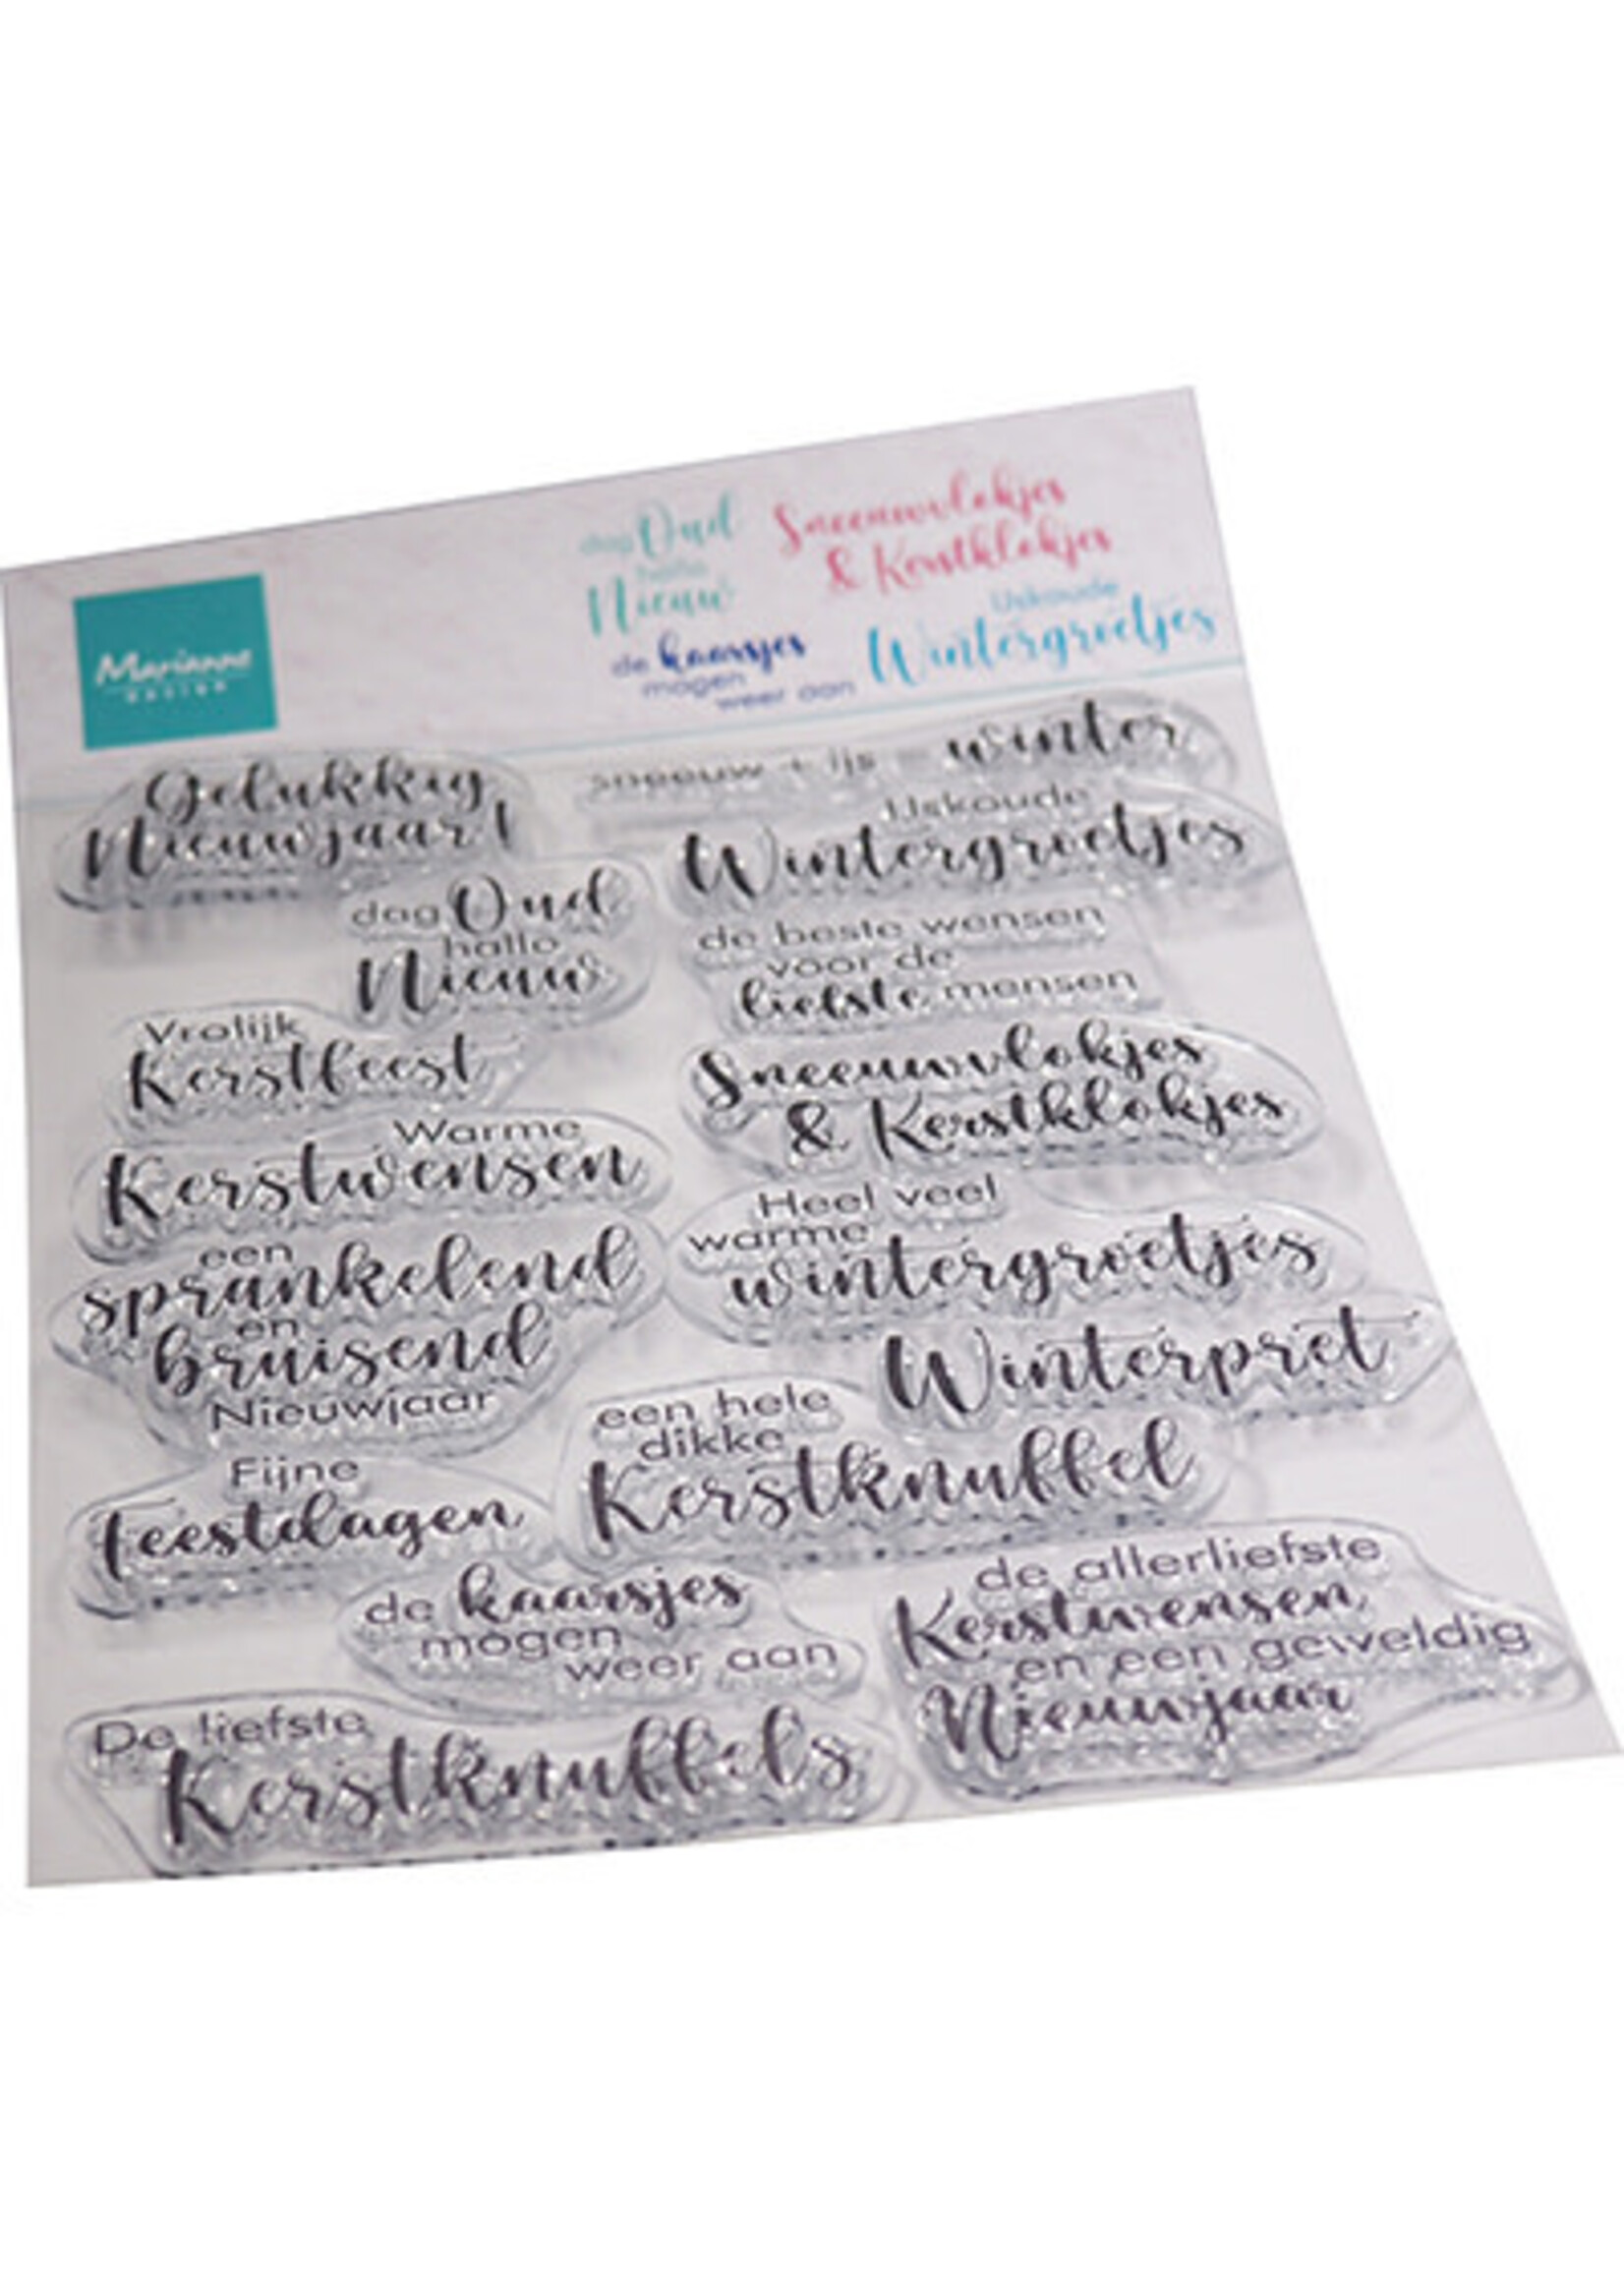 dag Oud
hallo
Nieuw
Sneeuwvlokjes
& Kerstklokjes
de kaarsjes
mogen
weer aan
IJskoude
Wintergroetjes
Marianne
DESIGN
Gelukkig
Nieuwjaar!
dag Oud
hallo
Nieuw
Vrolijk
Kerstfeest
Warme
Kerstwensen
een
sprankelend
en
bruisend
Nieuwjaar
Fijne
Feestdagen
de kaarsjes
mogen
weer aan
De liefste
Kerstknuffels
sneeuw + ijs = winter
IJskoude
Wintergroetjes
de beste wensen
voor de
liefste mensen
Sneeuwvlokjes
& Kerstklokjes
Heel veel
warme
wintergroetjes
Winterpret
een hele
dikke
Kerstknuffel
de allerliefste
Kerstwensen
en een geweldig
Nieuwjaar